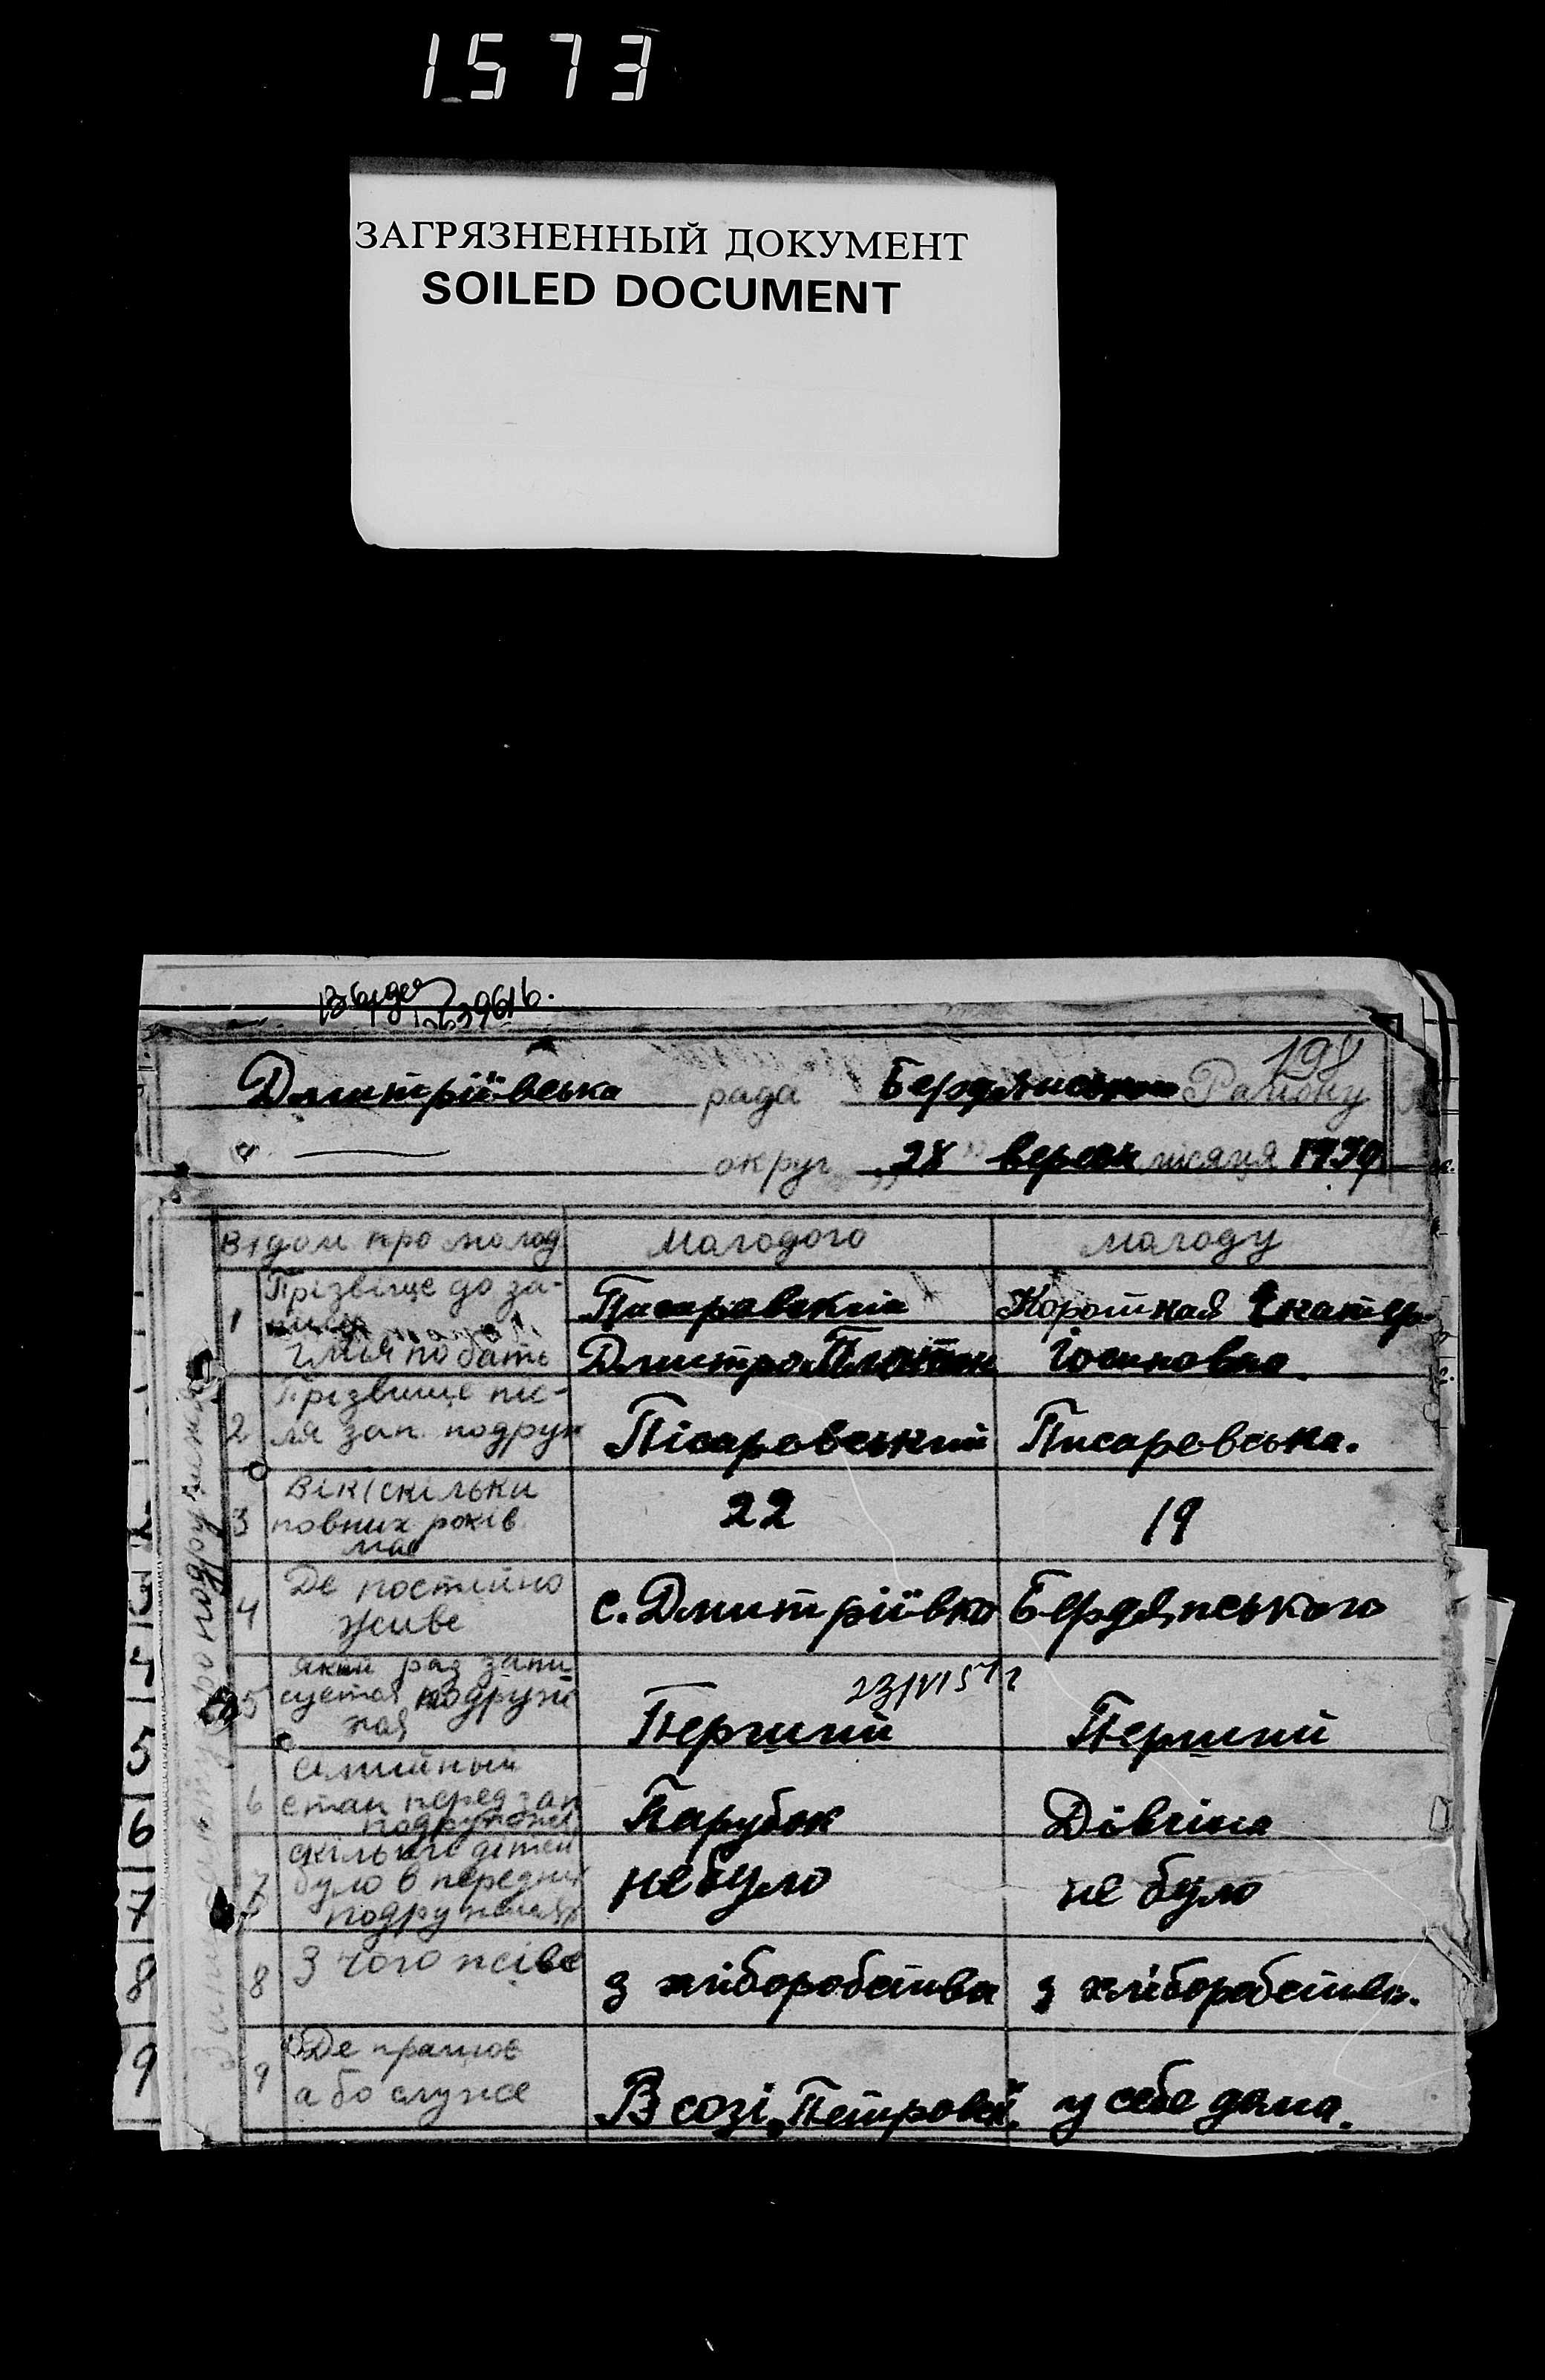 1573
ЗАГРЯЗНЕННЫЙ ДОКУМЕНТ
SOILED DOCUMENT
198
Дмитріївська рада Бердянського Району
округ „28" верезн місяця
Відом про молод Молодого молоду
1 Прізвіще до за- Писаровский Коротная Екатер
Імья по бать Дмитро Платон Іосиповна.
2 Прізвище піс-
ля зап. подруж Пісаровський Писаревська.
3 Вік (скільки
повних років
має 22 19
4 Де постійно
живе с. Дмитріївка Бердянського
5 який раз запи
суется подруж
ная Перший Перший
23/VI 51 г
6 Симийный
стан перед зап
подружжі Парубок Дівчіна
7 скілько дітей
було в передних
подружжях не було не було
8 З чого жіве з хліборобства з хліборобства.
9 Де працює
або служе В созі „Петровскі. у себе дома.
2
3
4
5
6
7
8
9